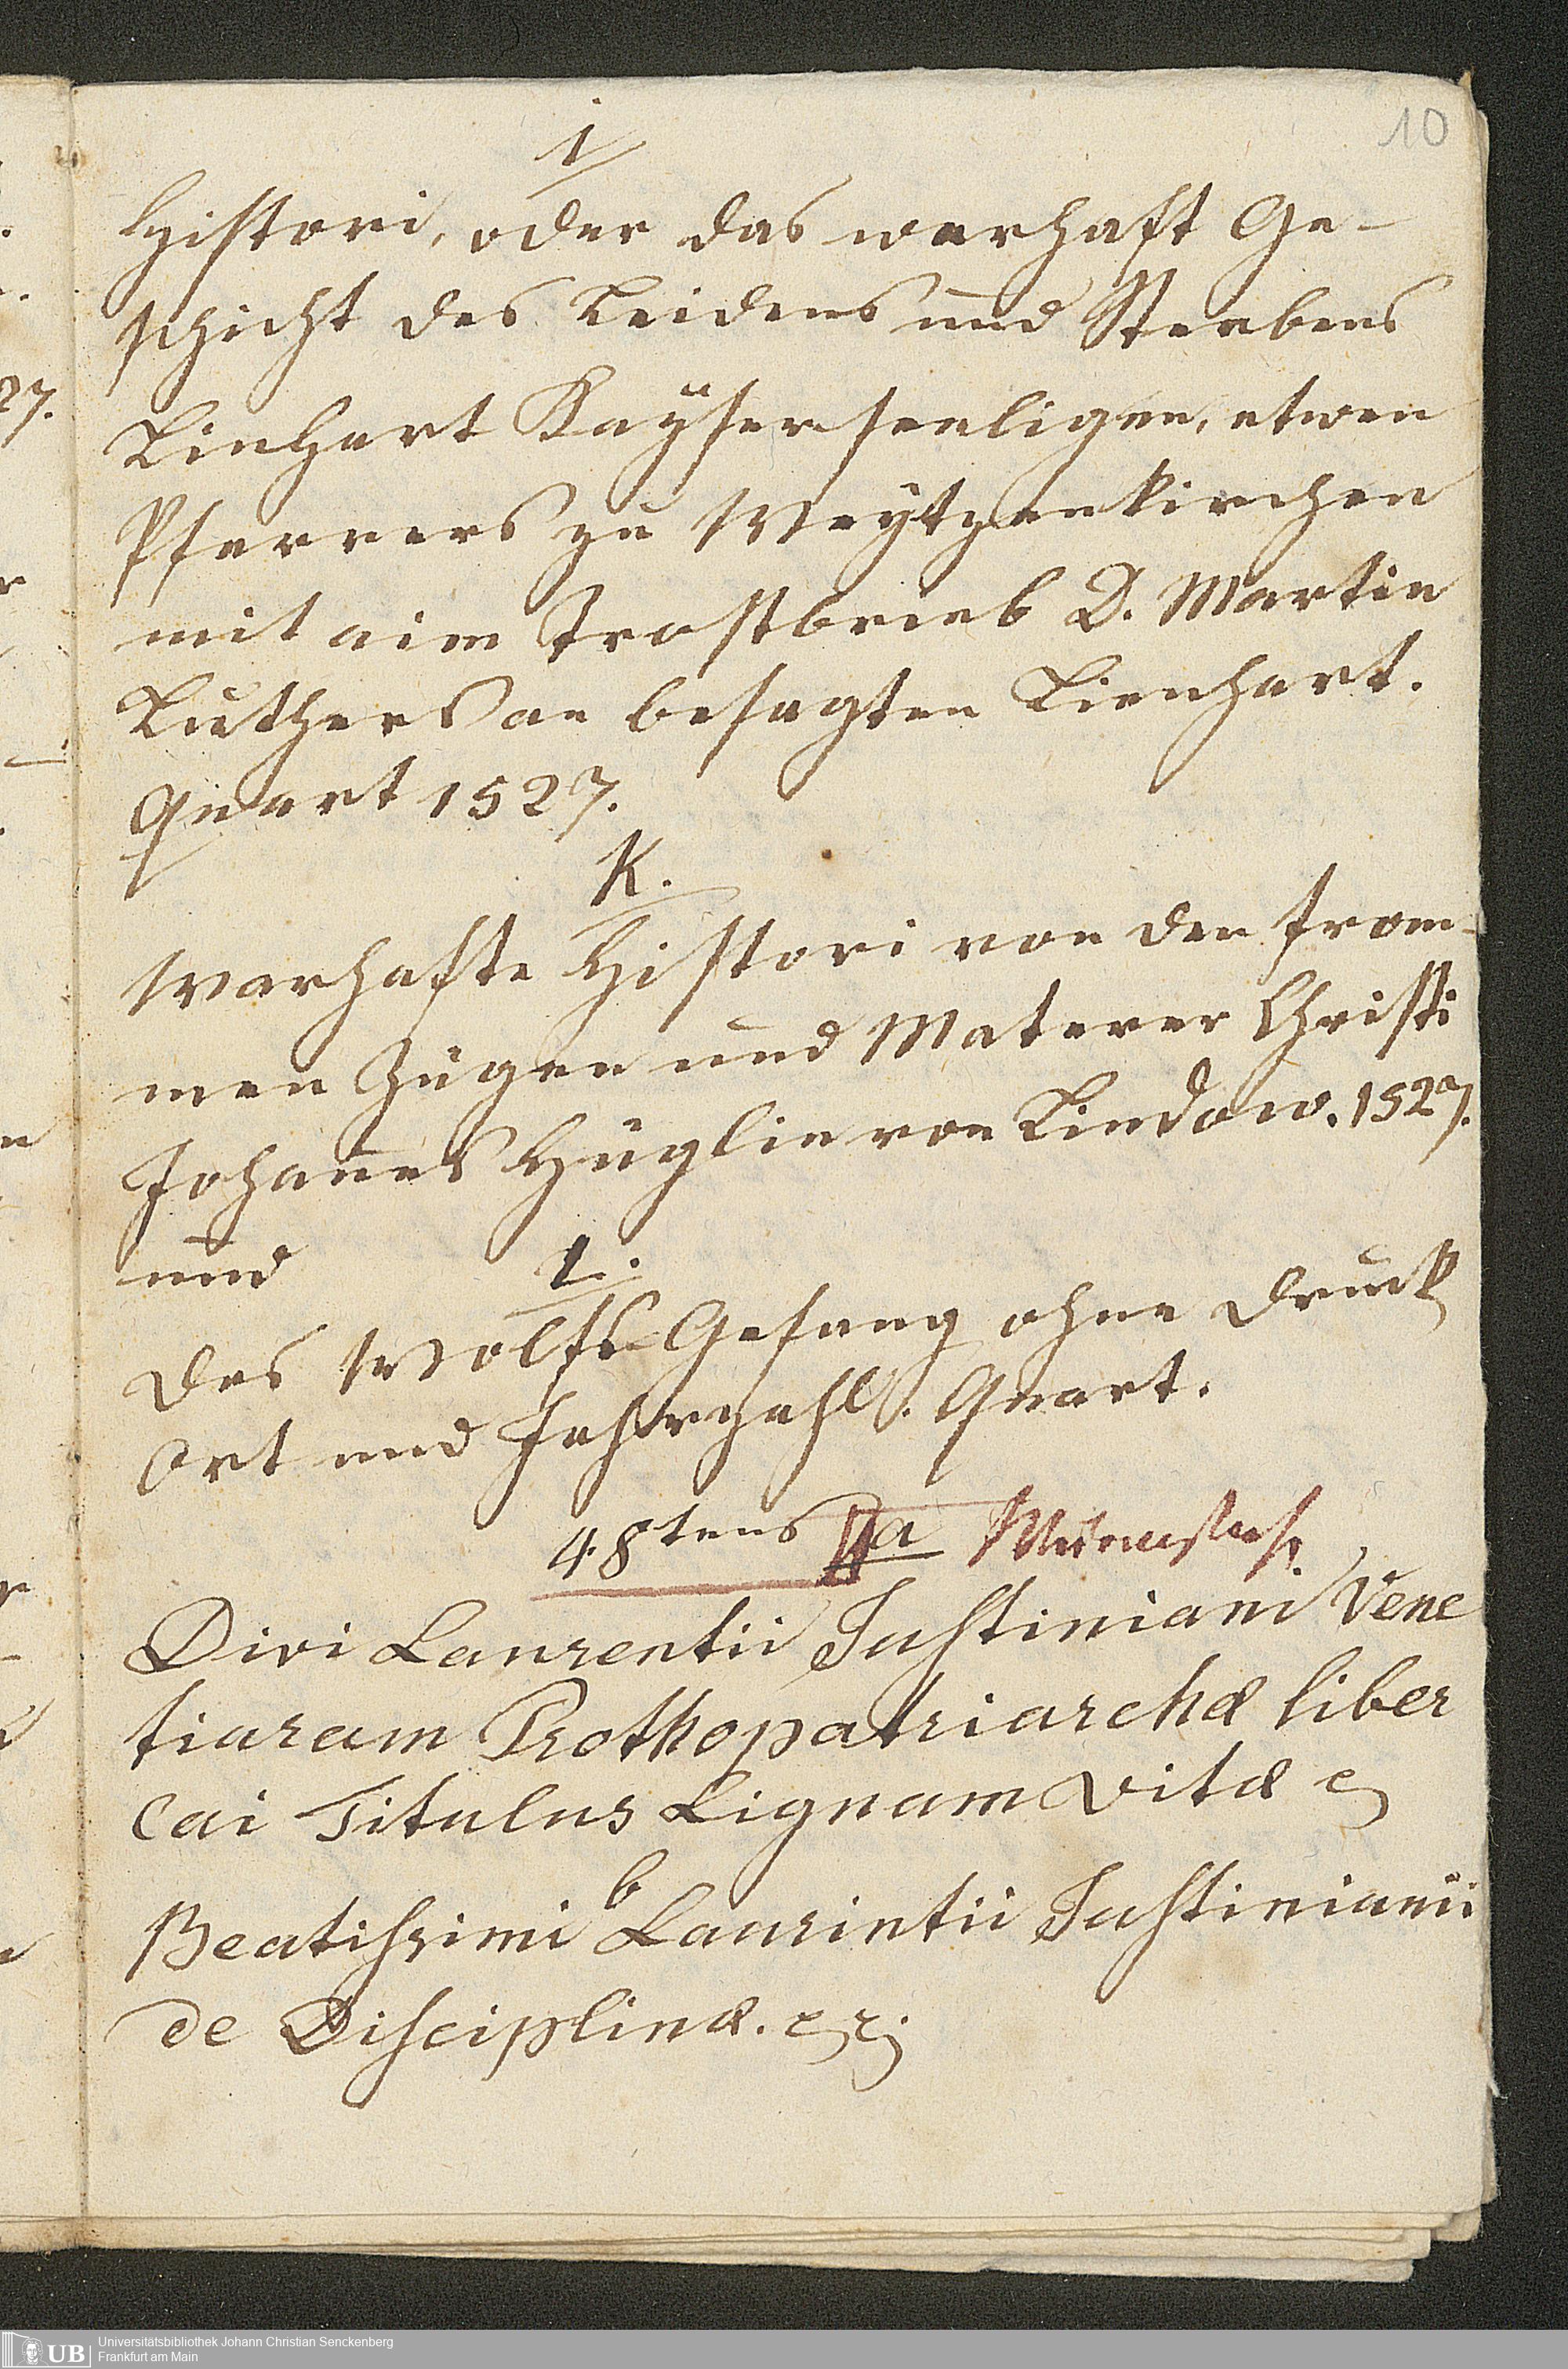 10
i
Histori, oder das warhaft Ge-
schicht des Leidens und Sterbens
Linhart Kaÿser seeligen, etwen
Pfarrers zu Weÿtzenkirchen
mit aim Trostbrieb D. Martin
Luthers an besagten Lienhart.
Quart 1527.
K.
Warhafte Histori von den from-
men Zügen und Materer Christi
Johan̄es Hüglin von Lindow. 1527.
und
l.
Des Wolfs-Gesang ohne Druck
Ort und Jahrzahl. Quart.
48tens a
Divi Laurentii Justiniani Vene
tiarum Prothopatriarchæ liber
cui Titulus Lignum vitæ
b
Beatissimi Laurintii Justinianii
de Disciplinæ.
Universitätsbibliothek Johann Christian Senckenberg
Frankfurt am Main
UB